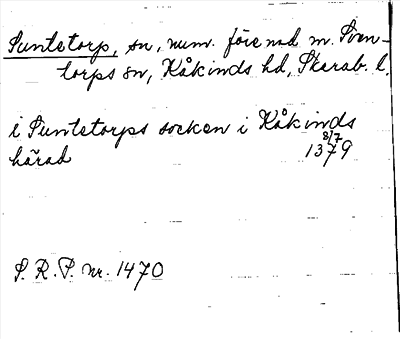 Suntetorp, sn, num. förenad m. Sven-
torps sn, Kåkinds hd, Skarab. l.
i Suntetorps socken i Kåkinds
härad 8/7 1379
S. R. P. nr. 1470